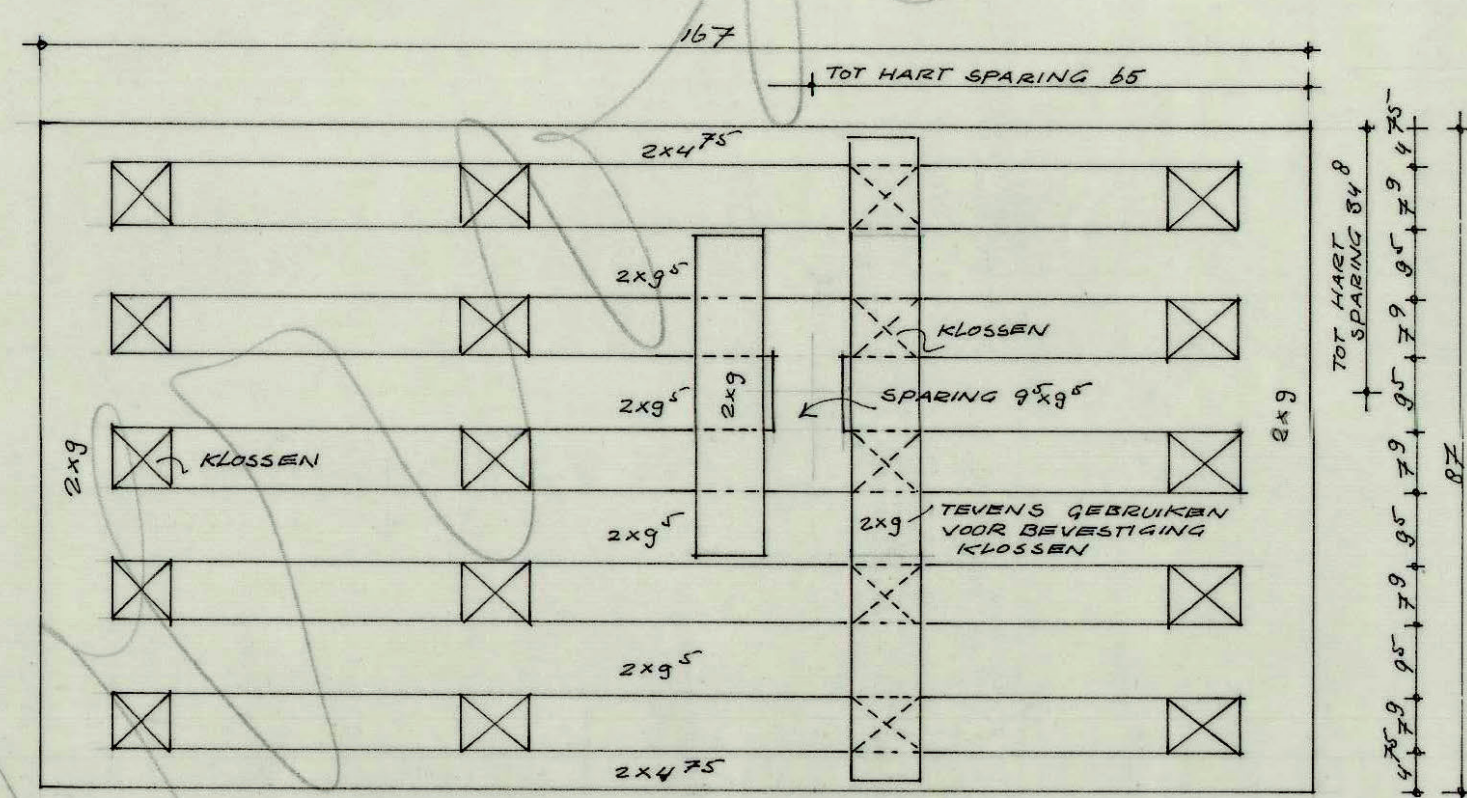 167
TOT HART SPARING 65
2x4 75
2x9 5
KLOSSEN
2x9 5
2x9
SPARING 9 5 x 9 5
2x9
KLOSSEN
2x9
2x9 5
2x9
TEVENS GEBRUIKEN
VOOR BEVESTIGING
KLOSSEN
2x9 5
2x4 75
TOT HART
SPARING 34 8
4 75
7 9
9 5
7 9
9 5
7 9
9 5
7 9
9 5
7 9
4 75
87